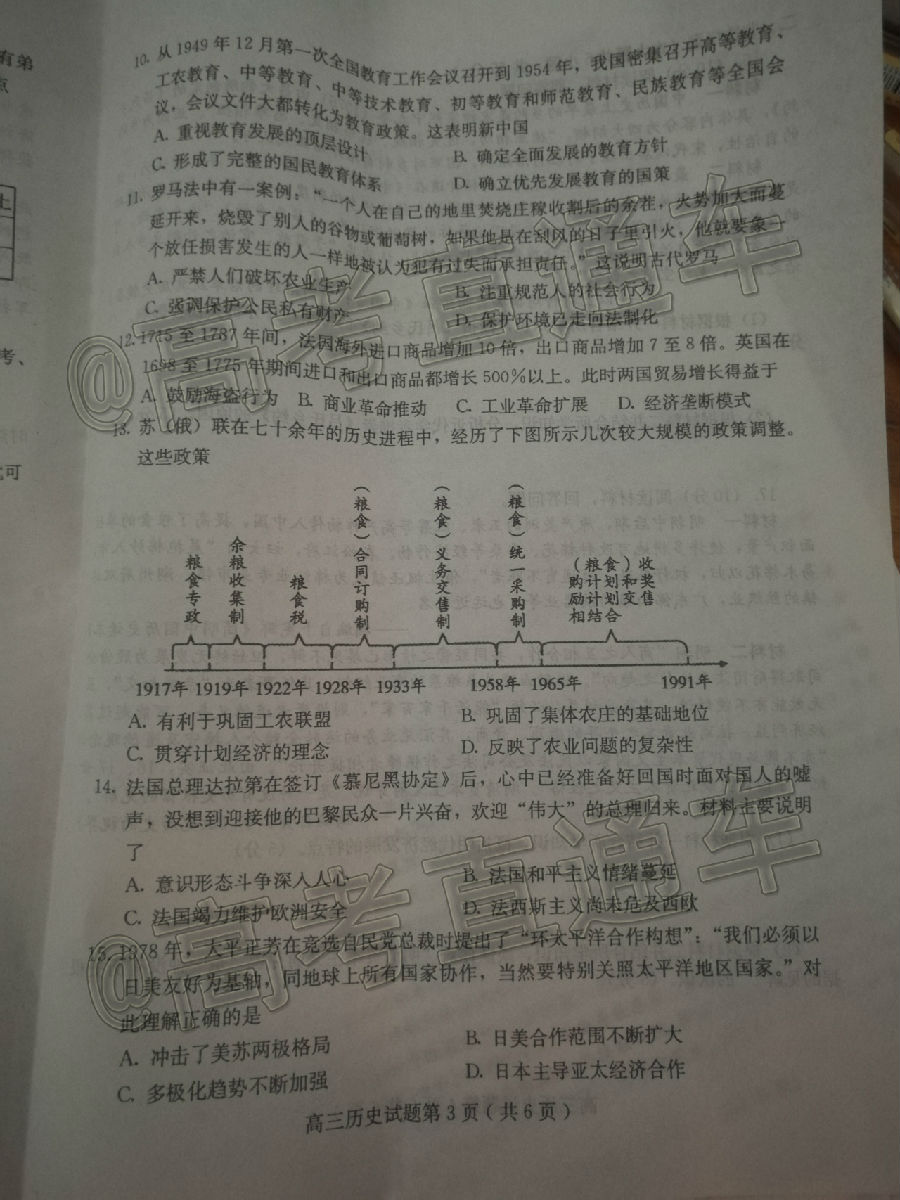 有弟
点
上
考、
可
10. 从1949年12月第一次全国教育工作会议召开到1954年，我国密集召开高等教育、
工农教育、中等教育、中等技术教育、初等教育和师范教育、民族教育等全国会
议，会议文件大都转化为教育政策。这表明新中国
A. 重视教育发展的顶层设计
B. 确定全面发展的教育方针
C. 形成了完整的国民教育体系
D. 确立优先发展教育的国策
11. 罗马法中有一案例：“一个人在自己的地里焚烧庄稼收割后的余茬，火势加大而蔓
延开来，烧毁了别人的谷物或葡萄树，如果他是在刮风的日子里引火，他就要象一
个放任损害发生的人一样地被认为犯有过失而承担责任。”这说明古代罗马
A. 严禁人们破坏农业生产
B. 注重规范人的社会行为
C. 强调保护公民私有财产
D. 保护环境已走向法制化
12. 1715至1787年间，法国海外进口商品增加10倍，出口商品增加7至8倍。英国在
1698至1775年期间进口和出口商品都增长500％以上。此时两国贸易增长得益于
A. 鼓励海盗行为 B. 商业革命推动 C. 工业革命扩展 D. 经济垄断模式
13. 苏（俄）联在七十余年的历史进程中，经历了下图所示几次较大规模的政策调整。
这些政策
粮食专政
余粮收集制
粮食税
（粮食）合同订购制
（粮食）义务交售制
（粮食）统一采购制
（粮食）收
购计划和奖
励计划交售
相结合
1917年 1919年 1922年 1928年 1933年 1958年 1965年 1991年
A. 有利于巩固工农联盟
B. 巩固了集体农庄的基础地位
C. 贯穿计划经济的理念
D. 反映了农业问题的复杂性
14. 法国总理达拉第在签订《慕尼黑协定》后，心中已经准备好回国时面对国人的嘘
声，没想到迎接他的巴黎民众一片兴奋，欢迎“伟大”的总理归来。材料主要说明
了
A. 意识形态斗争深入人心
B. 法国和平主义情绪蔓延
C. 法国竭力维护欧洲安全
D. 法西斯主义尚未危及西欧
15. 1978年，大平正芳在竞选自民党总裁时提出了“环太平洋合作构想”：“我们必须以
日美友好为基轴，同地球上所有国家协作，当然要特别关照太平洋地区国家。”对
此理解正确的是
A. 冲击了美苏两极格局
B. 日美合作范围不断扩大
C. 多极化趋势不断加强
D. 日本主导亚太经济合作
高三历史试题第3页（共6页）
@高考直通车
@高考直通车